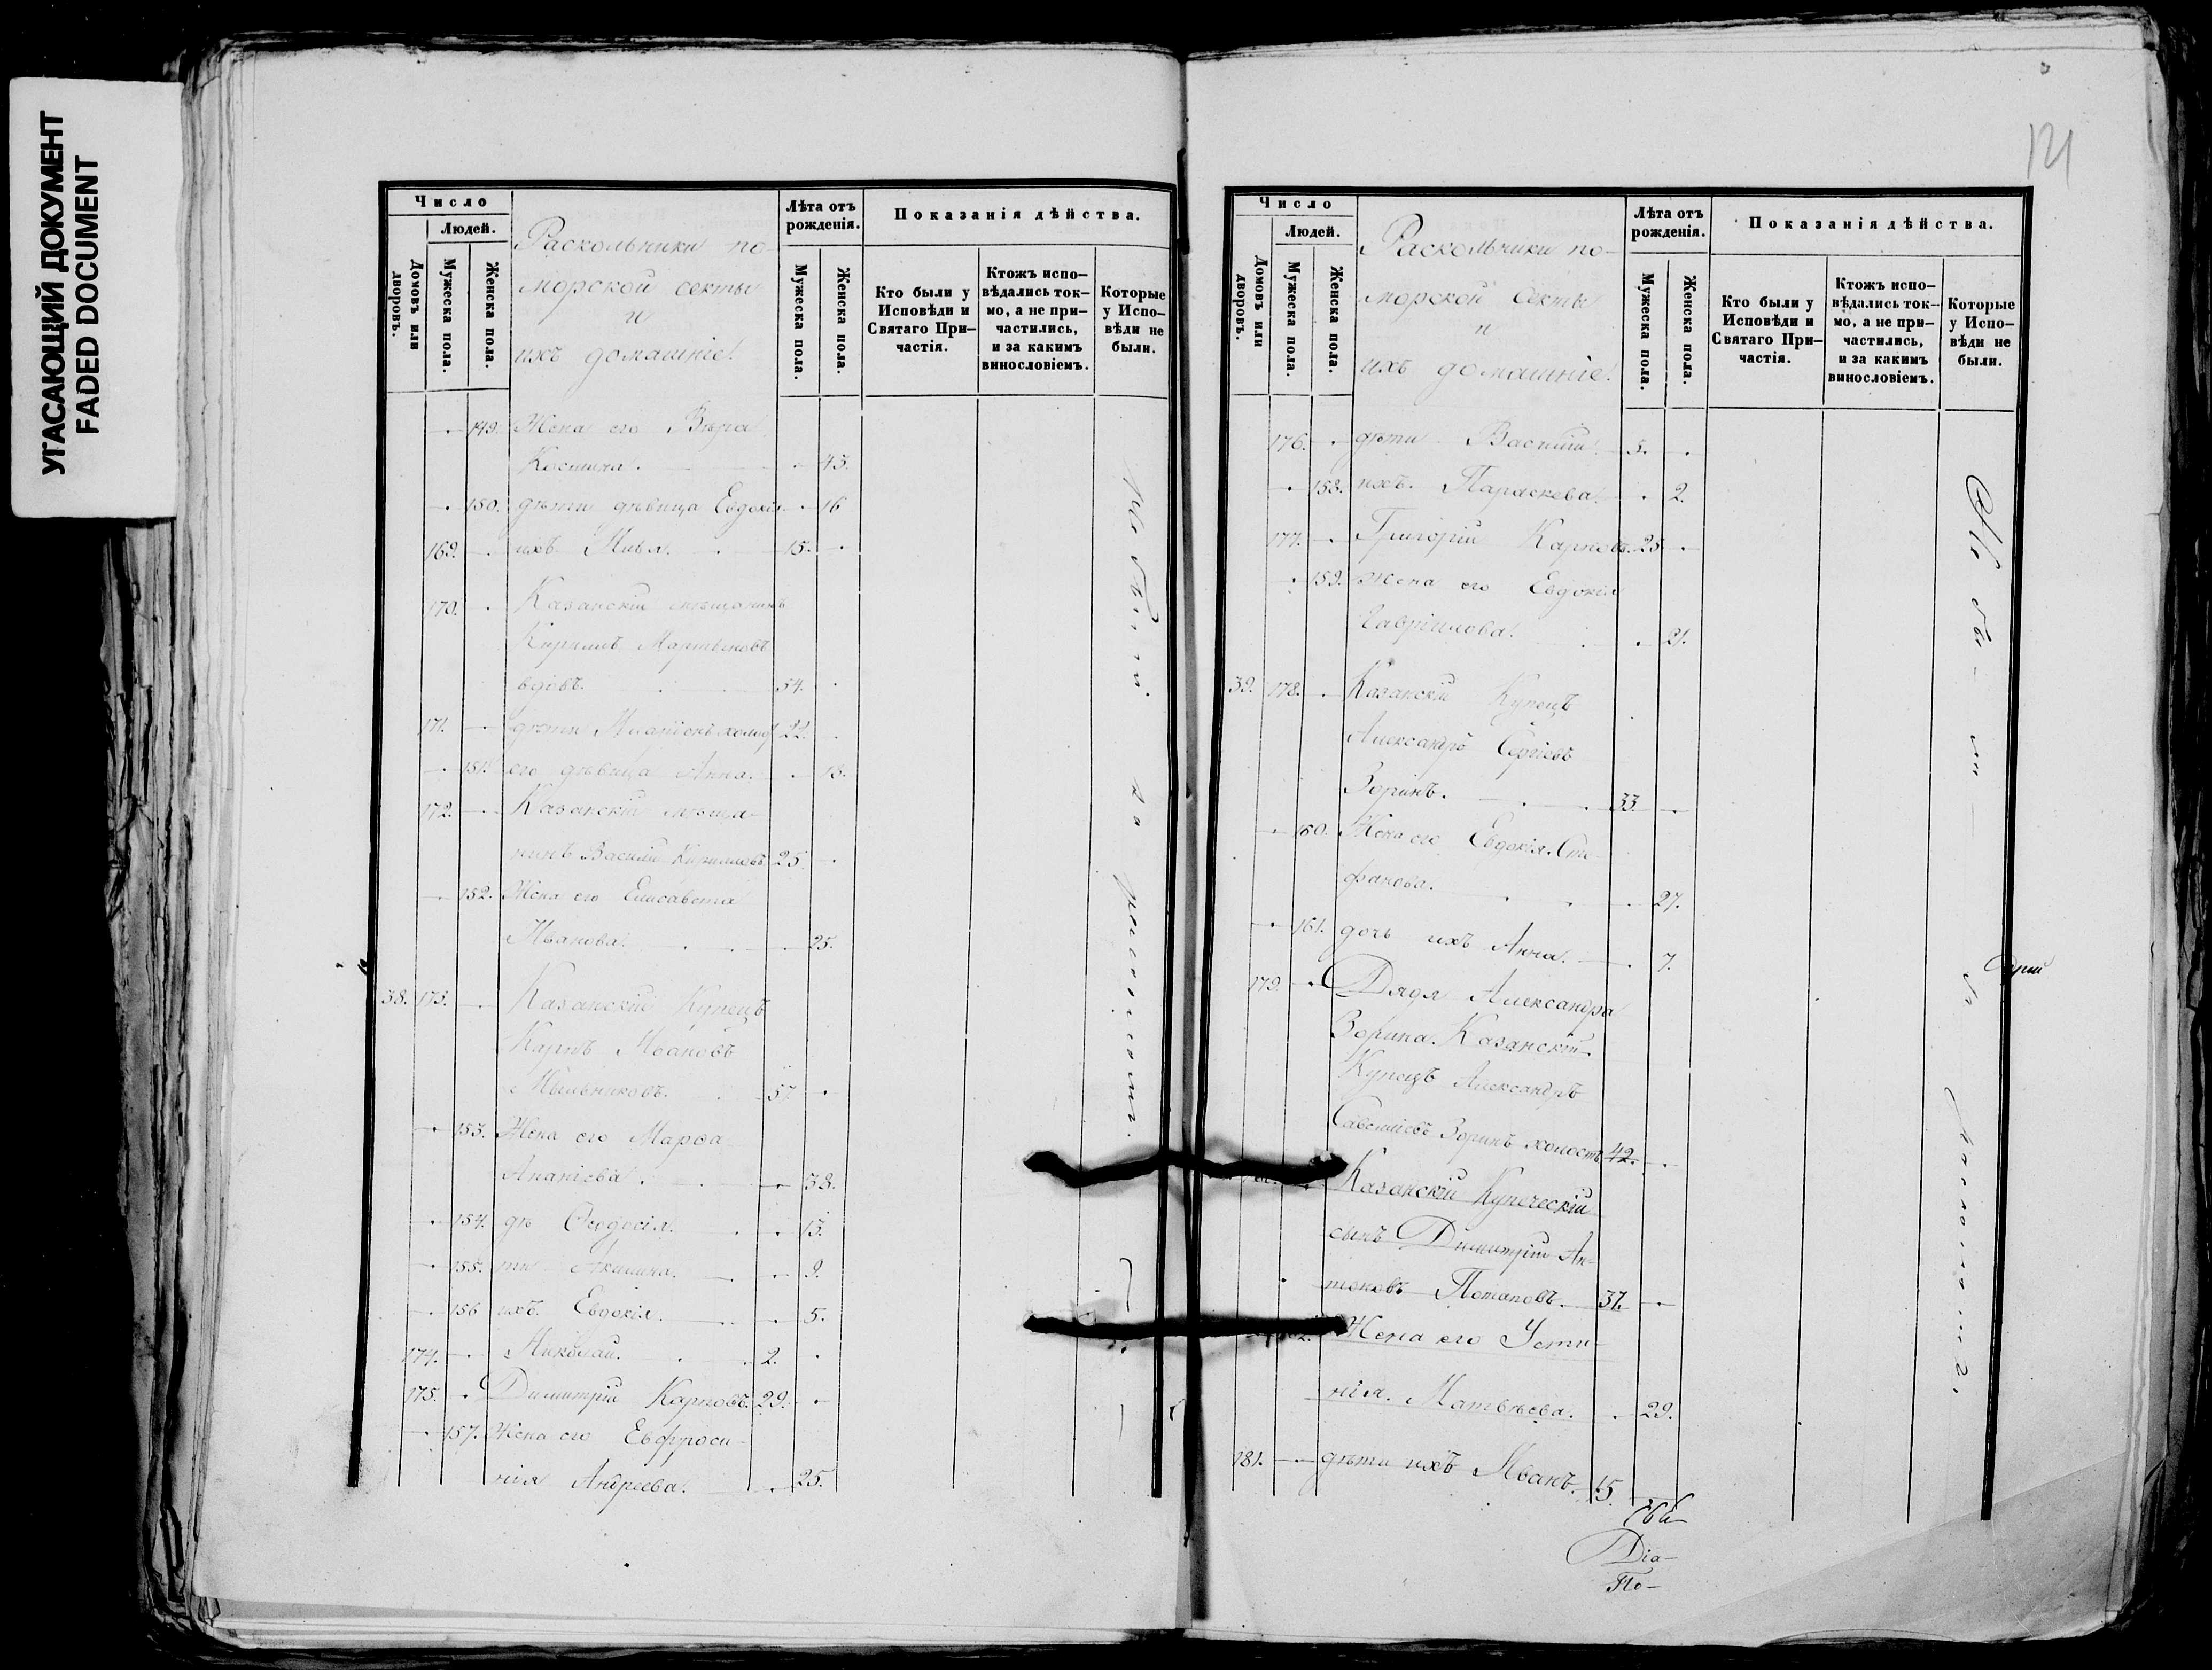 УГАСАЮЩИЙ ДОКУМЕНТ
FADED DOCUMENT
Число
Людей.
Домовъ или дворовъ.
Мужеска пола.
Женска пола.
Раскольники по-
морской секты
и
ихъ домашніе.
Лѣта отъ рожденія.
Мужеска пола.
Женска пола.
Показанія дѣйства.
Кто были у Исповѣди и Святаго При-частія.
Ктожъ испо-вѣдались ток-мо, а не при-частились, и за какимъ винословіемъ.
Которые у Испо-вѣди не были.
149. Жена его Вѣра
Космина. 43.
150. дѣти дѣвица Евдокія 16
169. ихъ Илья. 15.
170. Казанскій мѣщанинъ
Кириллъ Мартыновъ
вдовъ. 54.
171. дѣти холос 22.
151. его дѣвица Анна. 18.
172. Казанскій мѣща-
нинъ Василій Кирилловъ 25
152. Жена его Елисавета
Иванова. 25.
38. 173. Казанскій Купецъ
Карпъ Ивановъ
Мыльниковъ. 57.
153. Жена его Марѳа
Ананіева. 38.
154. дѣ Ѳеодосія. 13.
155. ти Акилина. 9.
156 ихъ Евдокія. 5.
174. Николай. 2.
175. Димитрій Карповъ. 29.
157. Жена его Евфроси-
нія Андреева. 25.
Не были за расколомъ.
121
Число
Людей.
Домовъ или дворовъ.
Мужеска пола.
Женска пола.
Раскольники по-
морской секты
и
ихъ домашніе.
Лѣта отъ рожденія.
Мужеска пола.
Женска пола.
Показанія дѣйства.
Кто были у Исповѣди и Святаго При-частія.
Ктожъ испо-вѣдались ток-мо, а не при-частились, и за какимъ винословіемъ.
Которые у Испо-вѣди не были.
176. дѣти Василій 5.
158. ихъ. Параскева. 2.
177. Григорій Карповъ. 25.
159. жена его Евдокія
Гавріилова. 21.
39. 178. Казанскій Купецъ
Александръ Сергіевъ
Зоринъ. 33.
160. Жена его Евдокія Сте-
фанова. 27.
161. дочь ихъ Анна. 7.
179. Дядя Александра
Зорина Казанскій
Купецъ Александръ
Савеліевъ Зоринъ холостъ 42.
Казанскій Купеческій
сынъ Димитрій Ан-
тоновъ Потаповъ. 37.
Жена его Усти-
нія Матвѣева. 29.
181. дѣти ихъ Иванъ. 15.
Не бы-ли за расколомъ.
Діа-
По-